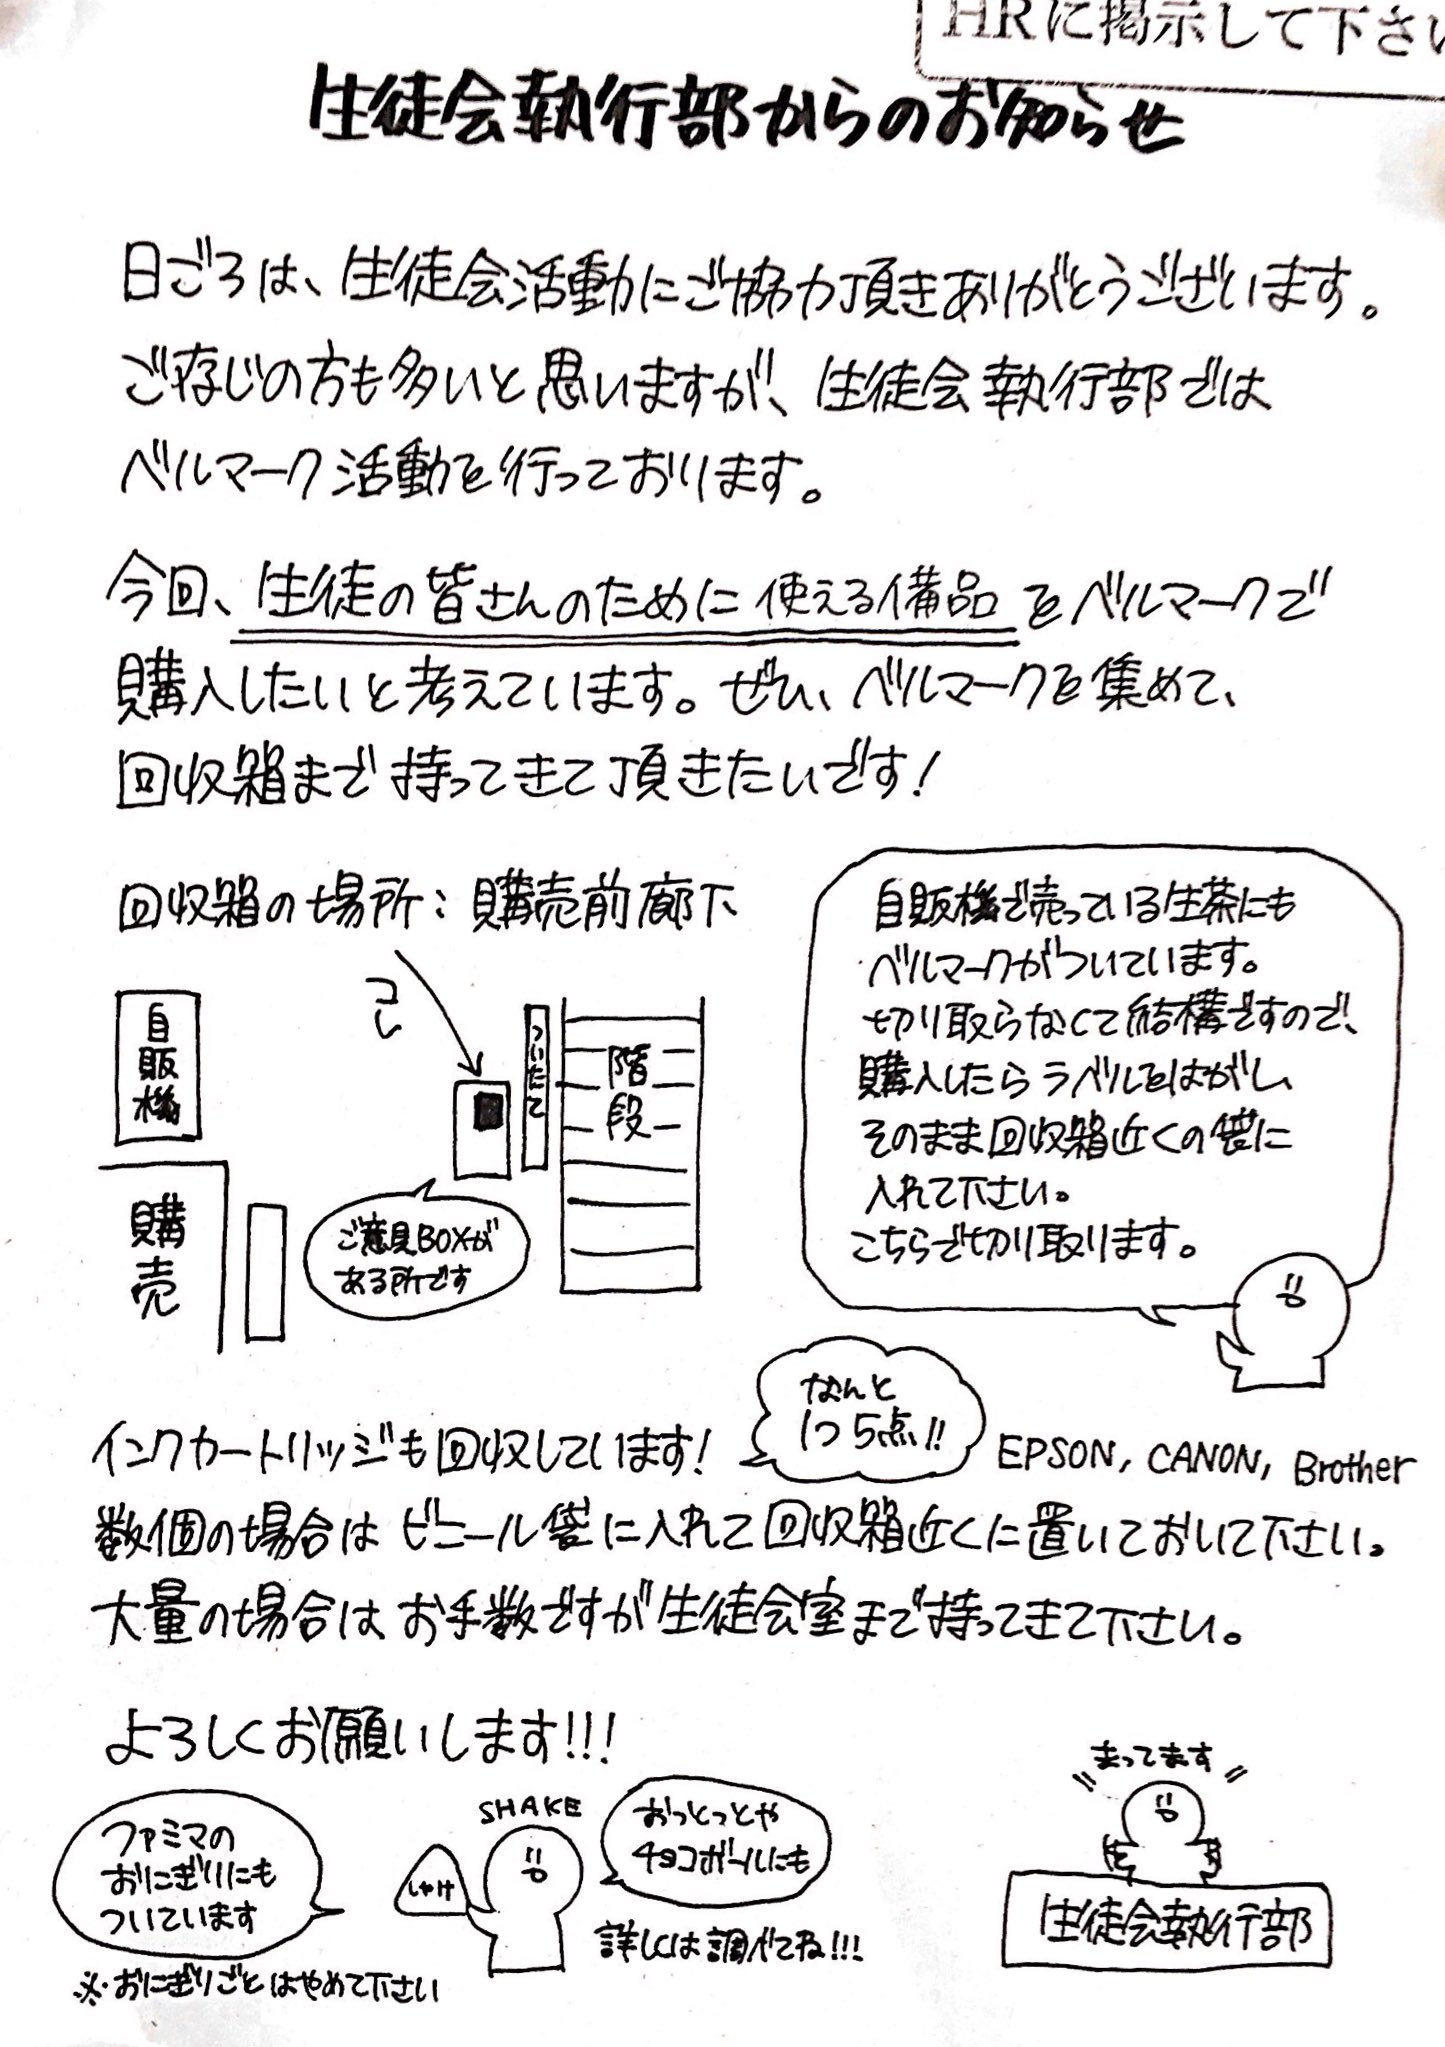 HRに掲示して下さい
生徒会執行部からのお知らせ
日ごろは、生徒会活動にご協力頂きありがとうございます。
ご存じの方も多いと思いますが、生徒会執行部では
ベルマーク活動を行っております。
今回、生徒の皆さんのために使える備品をベルマークで
購入したいと考えています。ぜひ、ベルマークを集めて、
回収箱まで持ってきて頂きたいです!
回収箱の場所:購売前廊下
ココ
自販機
購売
ついたて
階段
ご意見BOXが
ある所です
自販機で売っている生茶にも
ベルマークがついています。
切り取らなくて結構ですので、
購入したらラベルをはがし、
そのまま回収箱近くの袋に
入れて下さい。
こちらで切り取ります。
インクカートリッジも回収しています!
なんと
1つ5点!!
EPSON, CANON, Brother
数個の場合はビニール袋に入れて回収箱近くに置いておいて下さい。
大量の場合はお手数ですが生徒会室まで持ってきて下さい。
よろしくお願いします!!!
ファミマの
おにぎりにも
ついています
※おにぎりごとはやめて下さい
SHAKE
しゃけ
おっとっとや
チョコボールにも
詳しくは調べてね!!!
まってます
生徒会執行部